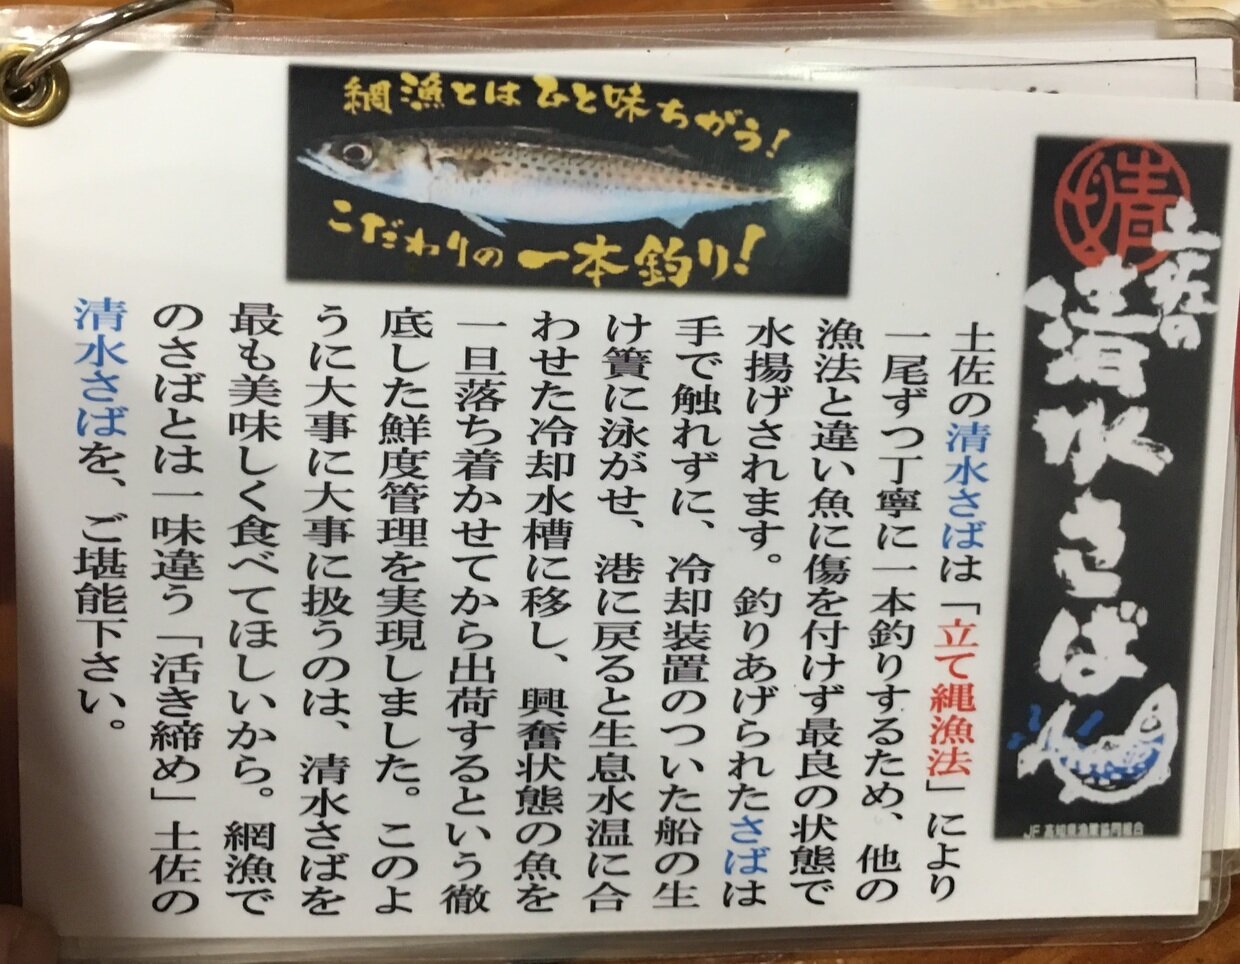 網漁とはひと味ちがう!
こだわりの一本釣り!
土佐の
清水さば
JF高知県漁業協同組合
土佐の清水さばは「立て縄漁法」により
一尾ずつ丁寧に一本釣りするため、他の
漁法と違い魚に傷を付けず最良の状態で
水揚げされます。釣りあげられたさばは
手で触れずに、冷却装置のついた船の生
け簀に泳がせ、港に戻ると生息水温に合
わせた冷却水槽に移し、興奮状態の魚を
一旦落ち着かせてから出荷するという徹
底した鮮度管理を実現しました。このよ
うに大事に大事に扱うのは、清水さばを
最も美味しく食べてほしいから。網漁で
のさばとは一味違う「活き締め」土佐の
清水さばを、ご堪能下さい。